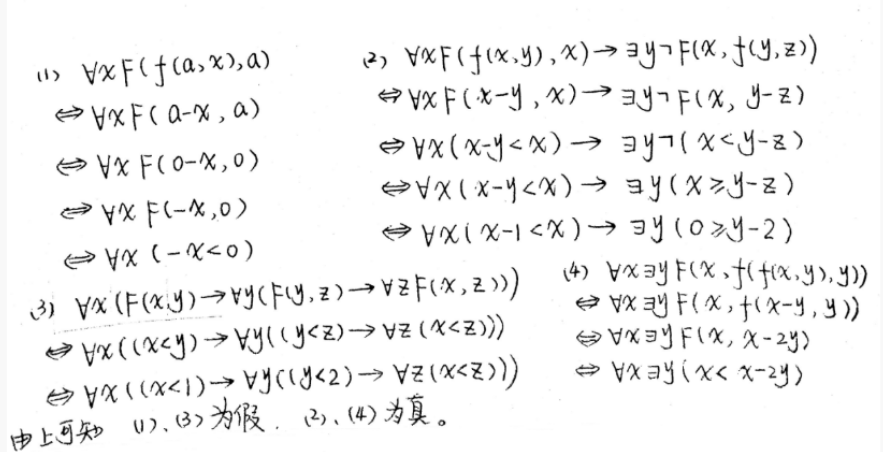 (1) ∀xF(f(a,x),a)
⇔∀xF(a-x,a)
⇔∀xF(0-x,0)
⇔∀xF(-x,0)
⇔∀x(-x<0)
(2) ∀xF(f(x,y),x)→∃y¬F(x,f(y,z))
⇔∀xF(x-y,x)→∃y¬F(x,y-z)
⇔∀x(x-y<x)→∃y¬(x<y-z)
⇔∀x(x-y<x)→∃y(x≥y-z)
⇔∀x(x-1<x)→∃y(0≥y-2)
(3) ∀x(F(x,y)→∀y(F(y,z)→∀zF(x,z)))
⇔∀x((x<y)→∀y((y<z)→∀z(x<z)))
⇔∀x((x<1)→∀y((y<2)→∀z(x<z)))
(4) ∀x∃yF(x,f(f(x,y),y))
⇔∀x∃yF(x,f(x-y,y))
⇔∀x∃yF(x,x-2y)
⇔∀x∃y(x<x-2y)
由上可知 (1)、(3)为假. (2)、(4)为真。